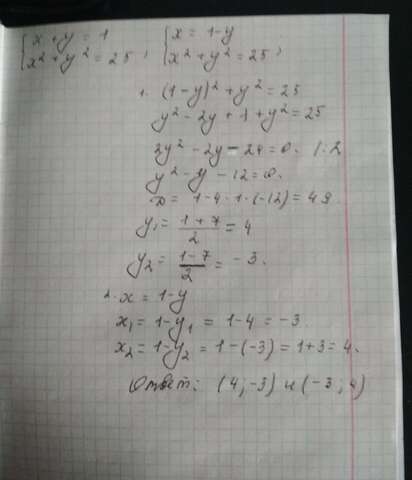 {x + y = 1 {x = 1-y
x² + y² = 25 ; x² + y² = 25 ;
1. (1-y)² + y² = 25
y² - 2y + 1 + y² = 25
2y² - 2y - 24 = 0. |:2
y² - y - 12 = 0.
D = 1-4·1·(-12) = 49
y₁ = (1+7)/2 = 4
y₂ = (1-7)/2 = -3.
2. x = 1-y
x₁ = 1-y₁ = 1-4 = -3.
x₂ = 1-y₂ = 1-(-3) = 1+3 = 4.
Ответ: (4;-3) и (-3;4)